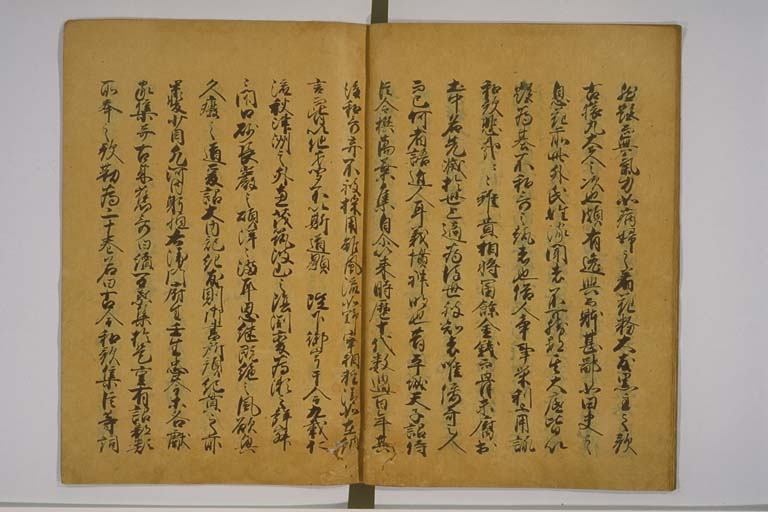 然艶而無氣力如病婦之着花粉大友黒主之歌
古猿丸大夫之次也頗有逸興而躰甚鄙如田夫之
息花前也此外氏姓流聞者不可勝數其大底皆以
艶為基不知哥之趣者也俗人争事栄利不用詠
和歌悲哉々々雖貴相将冨餘金錢而骨未腐於
土中名先滅於世上適為後世被知者唯倭哥之人
而已何者語近人耳義慣神明也昔平城天子詔侍
臣令撰萬葉集自尓以来時歴十代數過百年其
後和哥弃不被採用雖風流如野宰相軽情如在納
言皆以他才聞不以斯道顕 陛下御宇于今九載仁
流秋津洲之外恵茂筑波山之陰渕變為瀬之聲寂
々閇口砂長為巌之頌洋々満耳思継既絶之風欲興
久廢之道爰詔大内記紀友則御書所預紀貫之前
甲斐少目凡河内躬恒右衛門府生壬生忠岑等各獻
家集并古来舊哥曰續万葉集於是重有詔部類
所奉之歌勒為二十巻名曰古今和歌集臣等詞